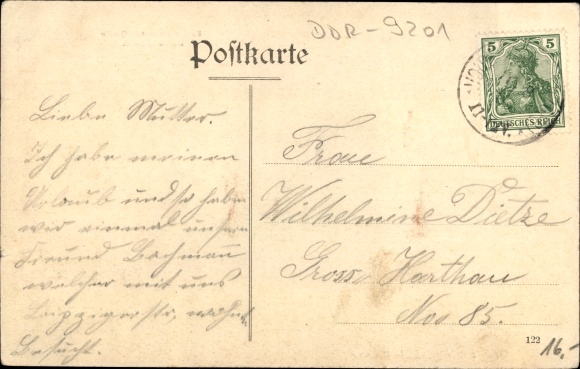 DDR-9201
Postkarte
5 5
DEUTSCHES REICH
Liebe Mutter.
Ich habe meinen
Urlaub und so haben
wir einmal unsern
Freund Bachmann
welcher mit uns
Leipzigerstr, wohnt
besucht.
Frau
Wilhelmine Dietze
Gross Harthau
No 85.
122
16,-